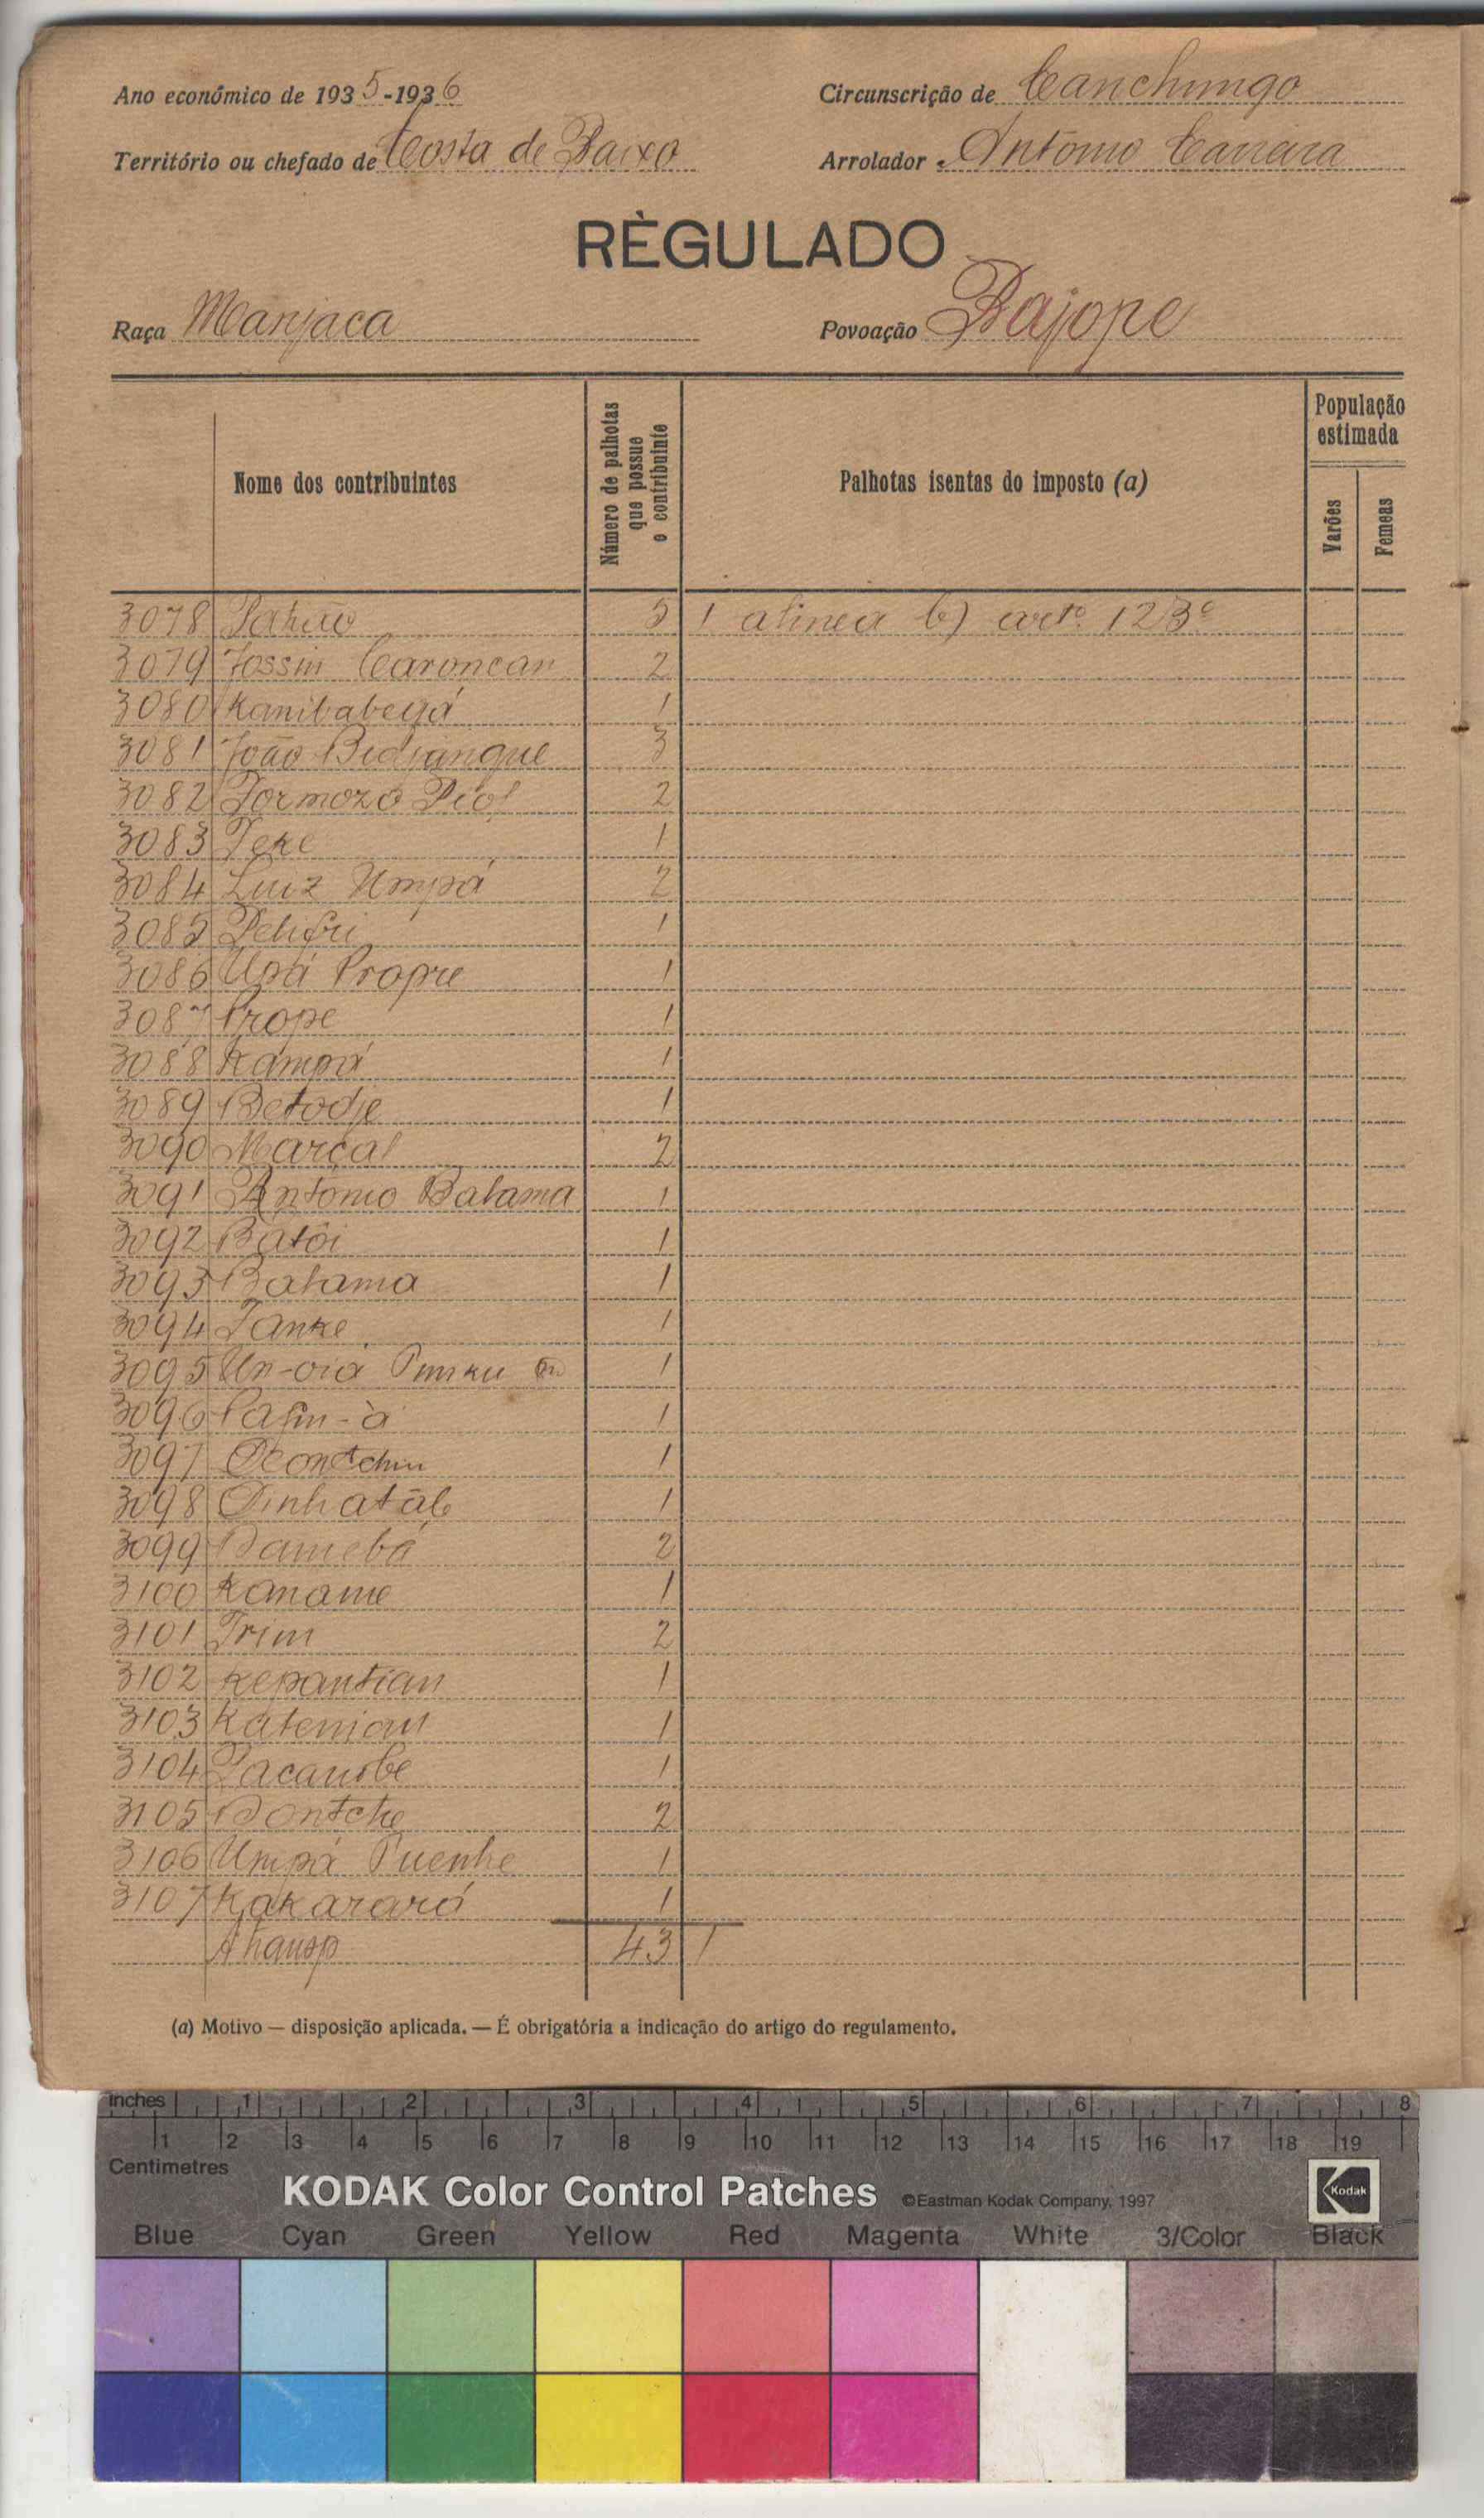 Ano económico de 1935-1936
Circunscrição de Canchungo
Território ou chefado de Costa de Baixo
Arrolador António Carreira
RÈGULADO
Raça Manjaca
Povoação Bajope
Nome dos contribuintes
Número de palhotas que possue o contribuinte
Palhotas isentas do imposto (a)
População estimada
Varões
Femeas
3078 5 1 alinea b) artº. 123º
3079 Jossin Caroncan 2
3080 Kanibabegá 1
3081 João Bidjangue 3
3082 Formozo 2
3083 Teke 1
3084 Luiz Umpá 2
3085 1
3086 Upá Propre 1
3087 Prope 1
3088 Kampá 1
3089 Betodje 1
3090 Marçal 2
3091 António Batama 1
3092 Batôi 1
3093 Batama 1
3094 Janke 1
3095 Un-oiá 1
3096 Pafin-à 1
3097 1
3098 Dinhatàb 1
3099 Damebá 2
3100 Kaname 1
3101 Trim 2
3102 Kepantian 1
3103 Katenian 1
3104 1
3105 Bontche 2
3106 Umpá Puenhe 1
3107 Kakarará 1
43 1
(a) Motivo — disposição aplicada. — É obrigatória a indicação do artigo do regulamento.
Inches 1 2 3 4 5 6 7 8
1 2 3 4 5 6 7 8 9 10 11 12 13 14 15 16 17 18 19
Centimetres
KODAK Color Control Patches ©Eastman Kodak Company, 1997 Kodak
Blue Cyan Green Yellow Red Magenta White 3/Color Black